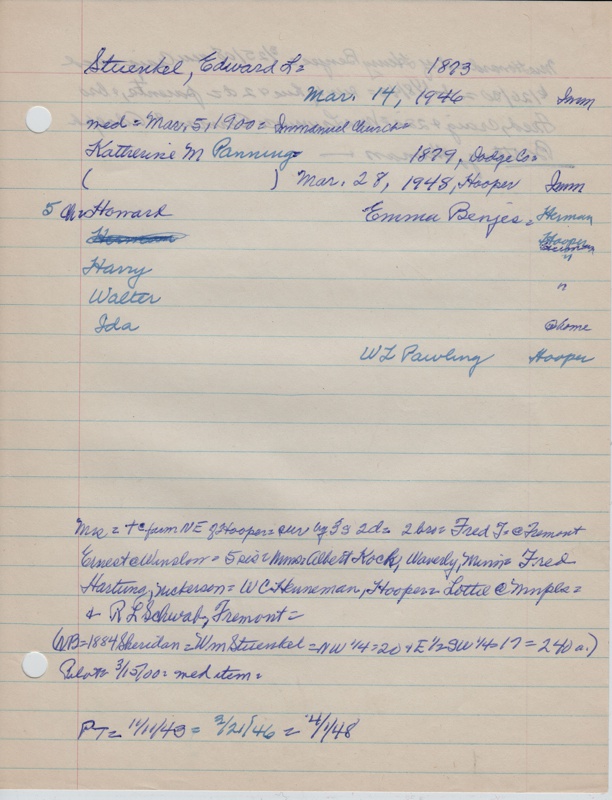 Stuenkel, Edward L= 1873
Mar. 14, 1946 Imm
med = Mar, 5, 1900 = Immanuel Church=
Katherine M Panning= 1879, Dodge Co=
( ) Mar. 28, 1948, Hooper Imm
5 Ch= Howard Emma Benjes = Herman
Herman Hooper
Harry "
Walter "
Ida @home
W L Pawling Hooper
Mrs = + @ farm NE of Hooper = sur by 3 s 2 d = 2 bro = Fred J = @ Fremont
Ernest @ Winslow = 5 sis = Mmes Albert Koch, Waverly, Minn = Fred
Hartung, Nickerson = W C Henneman, Hooper = Lottie @ Mnpls =
& R L Schwab, Fremont =
(NB = 1884 Sheridan = Wm Stuenkel = NW 1/4 = 20 + E 1/2 = SW 1/4 = 17 = 240 a.)
Pilot = 3/15/00 = med item =
PT = 11/11/43 = 3/21/46 = 4/1/48